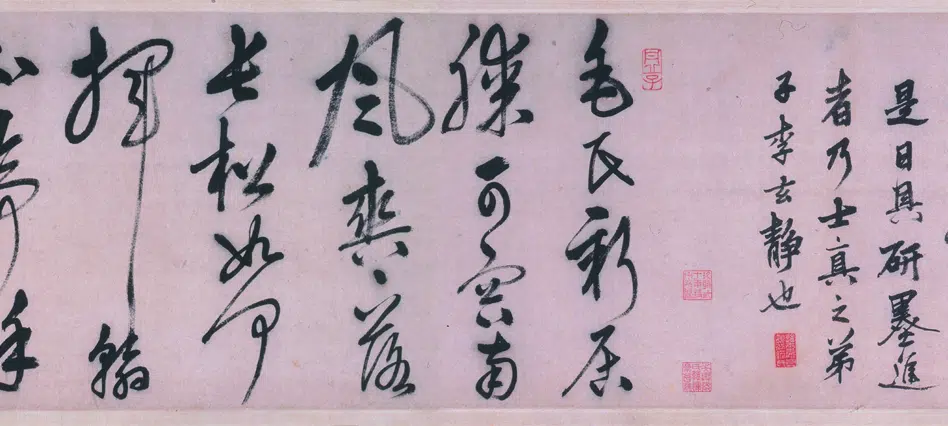 是日具研墨進
者乃士真之弟
子李玄靜也
毛氏新居
勝可容南
風爽〻落
長松如何
揮翰